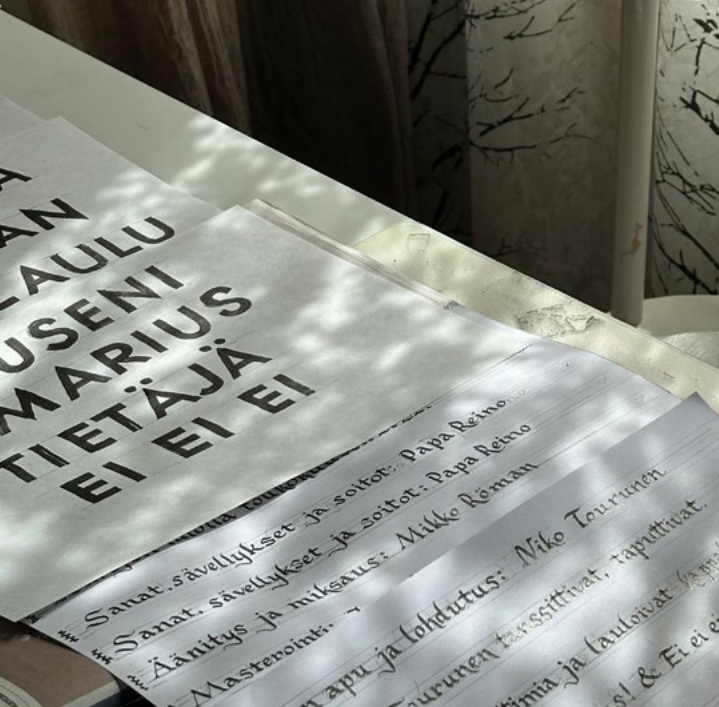 A
AN
LAULU
USENI
MARIUS
TIETÄJÄ
EI EI EI
Sanat, sävellykset ja soitot: Papa Reino
Sanat, sävellykset ja soitot: Papa Reino
Äänitys ja miksaus: Mikko Röman
Masterointi:
n apu ja lohdutus: Niko Tourunen
ourunen tanssittivat, taputtivat,
timia ja lauloivat
s! & Ei ei ei